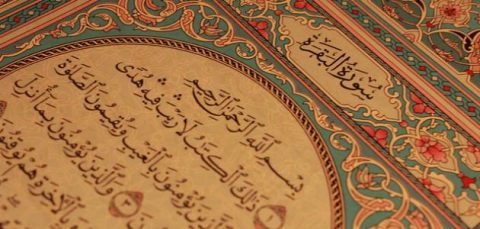 سُورَةُ الْبَقَرَةِ
بِسْمِ ٱللَّهِ ٱلرَّحْمَٰنِ ٱلرَّحِيمِ
ذَٰلِكَ ٱلْكِتَٰبُ لَا رَيْبَ فِيهِ هُدًى
ٱلَّذِينَ يُؤْمِنُونَ بِٱلْغَيْبِ وَيُقِيمُونَ ٱلصَّلَوٰةَ
٣ وَٱلَّذِينَ يُؤْمِنُونَ بِمَآ أُنزِلَ
وَبِٱلْءَاخِرَةِ هُمْ يُوقِنُونَ